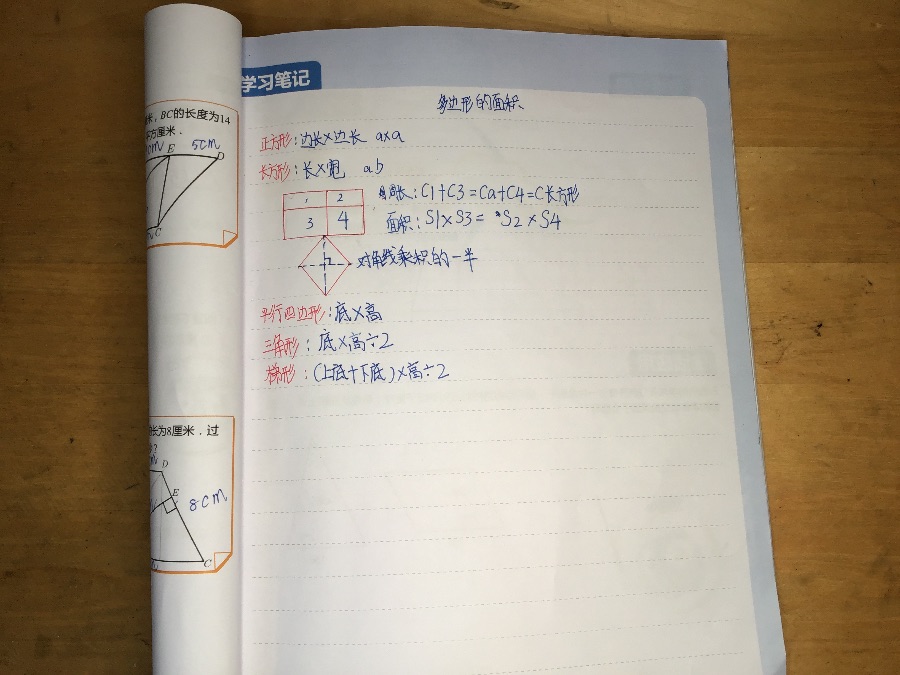 米，BC的长度为14
方厘米．
cm
E
5cm
D
C
长为8厘米．过
?
m
D
E
8cm
C
学习笔记
多边形的面积
正方形：边长×边长 a×a
长方形：长×宽 ab
1 2
3 4
周长：C1+C3=Ca+C4=C长方形
面积：S1×S3=S2×S4
对角线乘积的一半
平行四边形：底×高
三角形：底×高÷2
梯形：(上底+下底)×高÷2